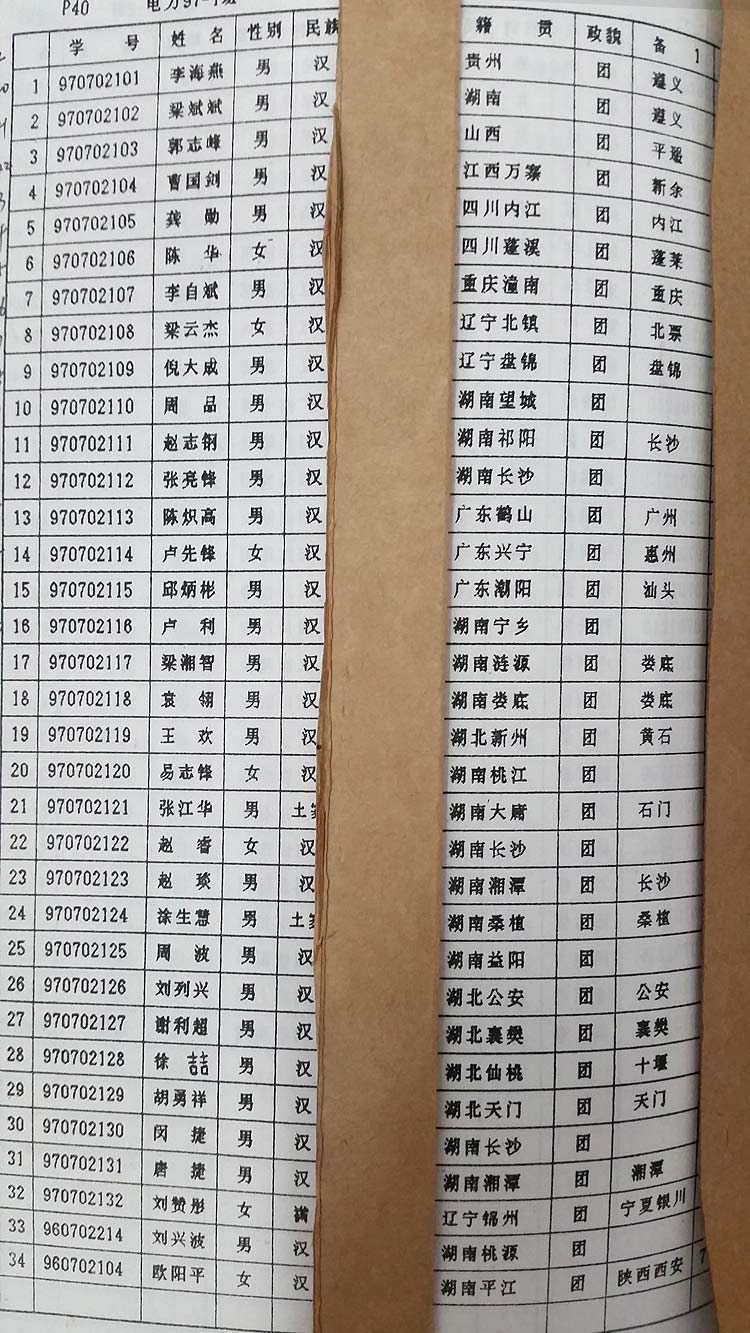 P40 电力97-1班
学 号 姓 名 性别 民族 籍 贯 政貌 备 1
1 970702101 李海燕 男 汉 贵州 团 遵义
2 970702102 梁斌斌 男 汉 湖南 团 遵义
3 970702103 郭志峰 男 汉 山西 团 平瑶
4 970702104 曹国剑 男 汉 江西万寨 团 新余
5 970702105 龚 勋 男 汉 四川内江 团 内江
6 970702106 陈 华 女 汉 四川蓬溪 团 蓬莱
7 970702107 李自斌 男 汉 重庆潼南 团 重庆
8 970702108 梁云杰 女 汉 辽宁北镇 团 北票
9 970702109 倪大成 男 汉 辽宁盘锦 团 盘锦
10 970702110 周 品 男 汉 湖南望城 团
11 970702111 赵志钢 男 汉 湖南祁阳 团 长沙
12 970702112 张亮锋 男 汉 湖南长沙 团
13 970702113 陈炽高 男 汉 广东鹤山 团 广州
14 970702114 卢先锋 女 汉 广东兴宁 团 惠州
15 970702115 邱炳彬 男 汉 广东潮阳 团 汕头
16 970702116 卢 利 男 汉 湖南宁乡 团
17 970702117 梁湘智 男 汉 湖南涟源 团 娄底
18 970702118 袁 翎 男 汉 湖南娄底 团 娄底
19 970702119 王 欢 男 汉 湖北新州 团 黄石
20 970702120 易志锋 女 汉 湖南桃江 团
21 970702121 张江华 男 土家 湖南大庸 团 石门
22 970702122 赵 睿 女 汉 湖南长沙 团
23 970702123 赵 琰 男 汉 湖南湘潭 团 长沙
24 970702124 涂生慧 男 土家 湖南桑植 团 桑植
25 970702125 周 波 男 汉 湖南益阳 团
26 970702126 刘列兴 男 汉 湖北公安 团 公安
27 970702127 谢利超 男 汉 湖北襄樊 团 襄樊
28 970702128 徐 喆 男 汉 湖北仙桃 团 十堰
29 970702129 胡勇祥 男 汉 湖北天门 团 天门
30 970702130 闵 捷 男 汉 湖南长沙 团
31 970702131 唐 捷 男 汉 湖南湘潭 团 湘潭
32 970702132 刘赞彤 女 满 辽宁锦州 团 宁夏银川
33 960702214 刘兴波 男 汉 湖南桃源 团
34 960702104 欧阳平 女 汉 湖南平江 团 陕西西安 7